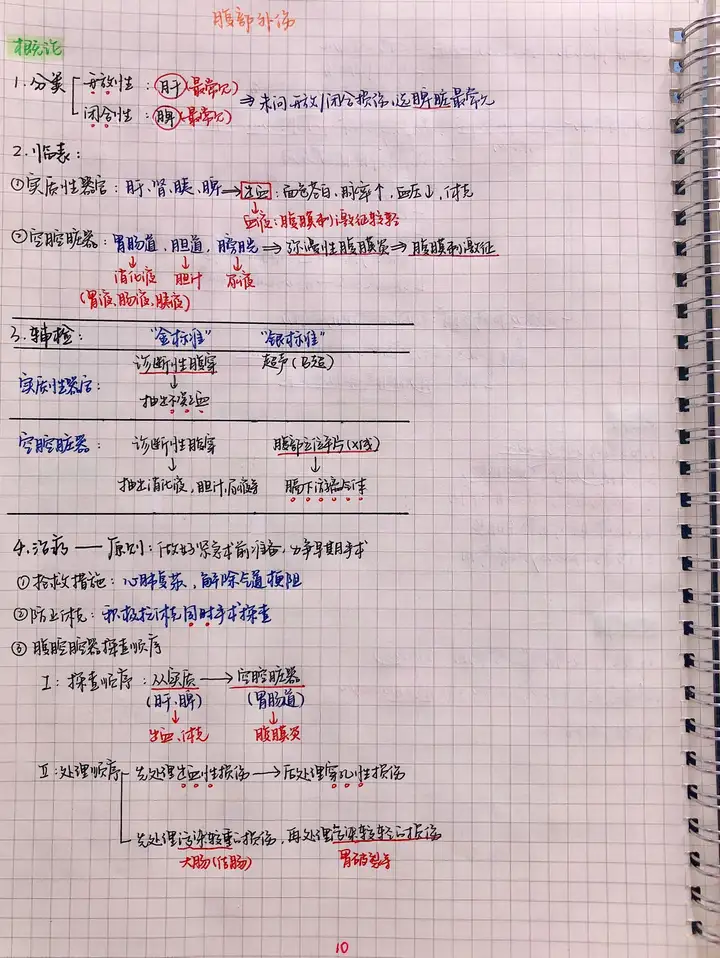 腹部外伤
概论
1.分类 开放性：肝(最常见)
闭合性：脾(最常见) ⇒ 未问开放/闭合损伤,选脾脏最常见
2.临表：
①实质性器官：肝、肾、胰、脾→出血：面色苍白、脉率↑,血压↓,休克
血液：腹膜刺激征较轻
②空腔脏器：胃肠道、胆道、膀胱⇒弥漫性腹膜炎⇒腹膜刺激征
消化液 胆汁 尿液
(胃液、肠液、胰液)
3.辅检： "金标准" "银标准"
诊断性腹穿 超声(B超)
实质性器官：
抽出不凝血
空腔脏器： 诊断性腹穿 腹部立位平片(X线)
抽出消化液,胆汁,尿液等 膈下游离气体
4.治疗——原则：做好紧急术前准备,力争早期手术
①抢救措施：心肺复苏、解除气道梗阻
②防止休克：积极抗休克同时手术探查
③腹腔脏器探查顺序
I：探查顺序：从实质→空腔脏器
(肝、脾) (胃肠道)
出血、休克 腹膜炎
II：处理顺序 先处理出血性损伤→后处理穿孔性损伤
先处理污染较重的损伤,再处理污染较轻的损伤
大肠(结肠) 胃破裂等
10